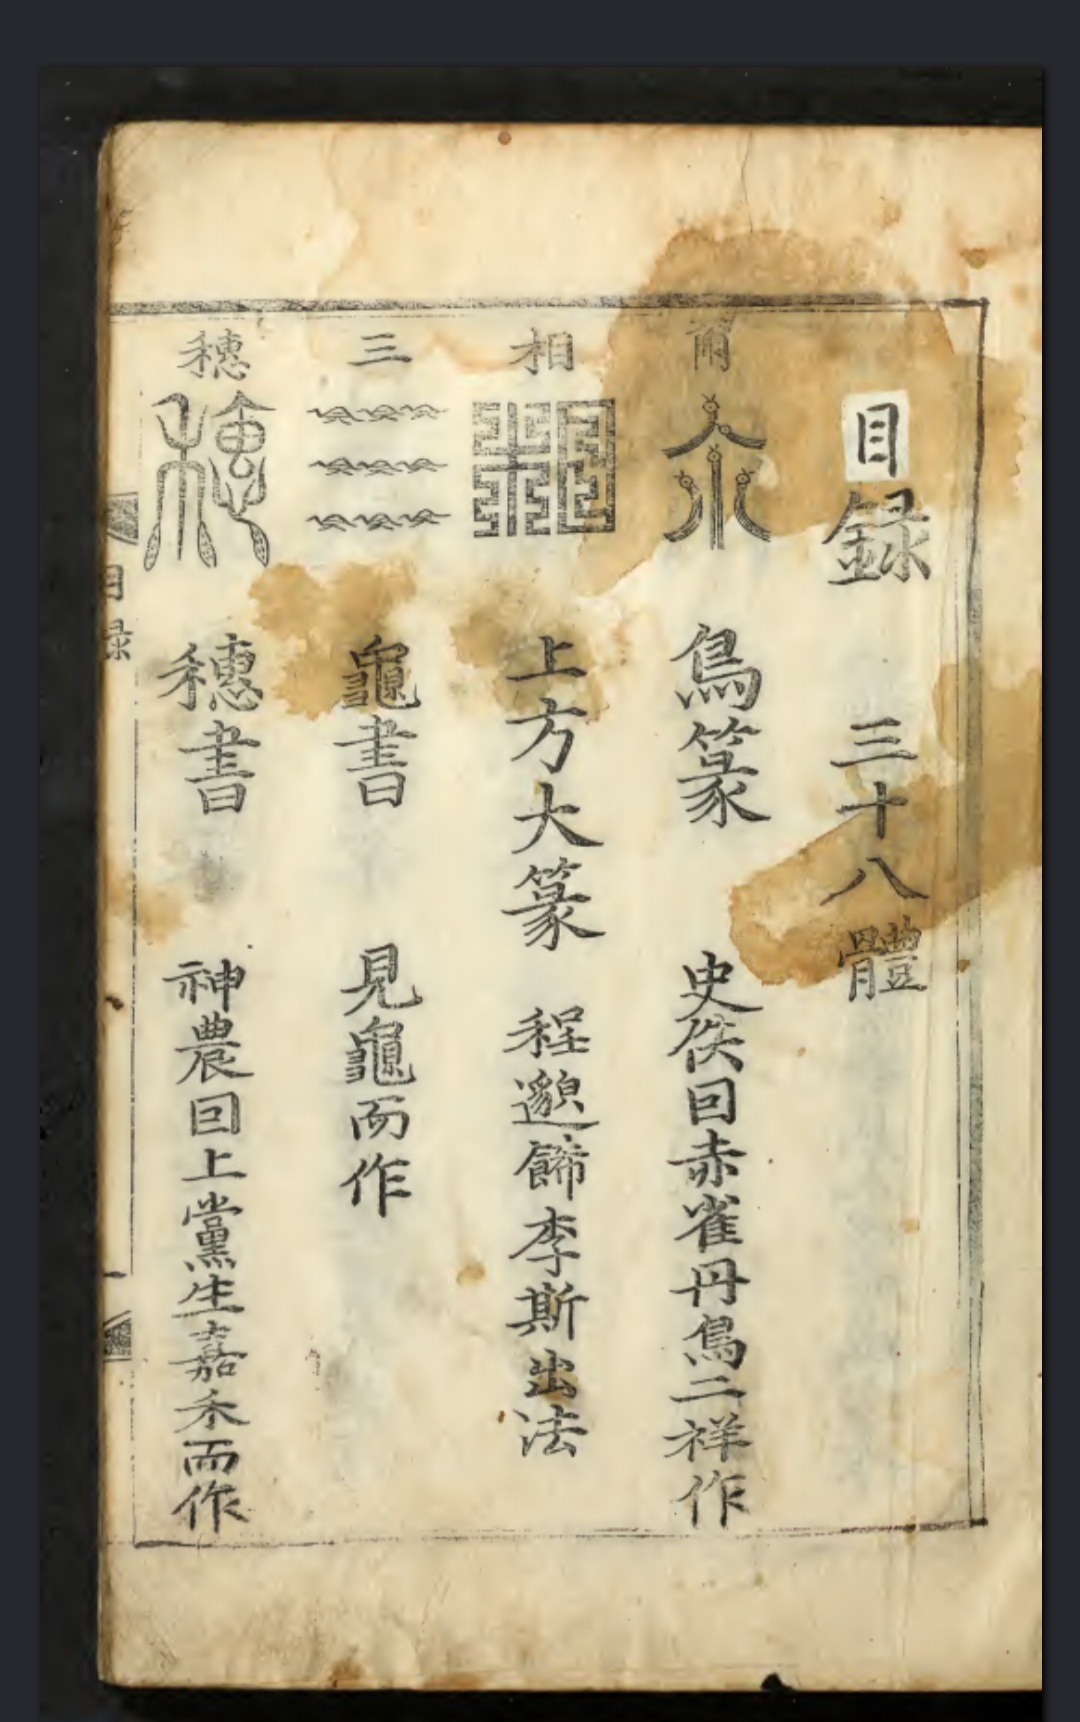 目録 三十八體
爾 鳥篆 史佚回赤雀丹鳥二祥作
相 上方大篆 程邈餙李斯出法
三 龜書 見龜而作
穗 穗書 神農回上黨生嘉禾而作
目録